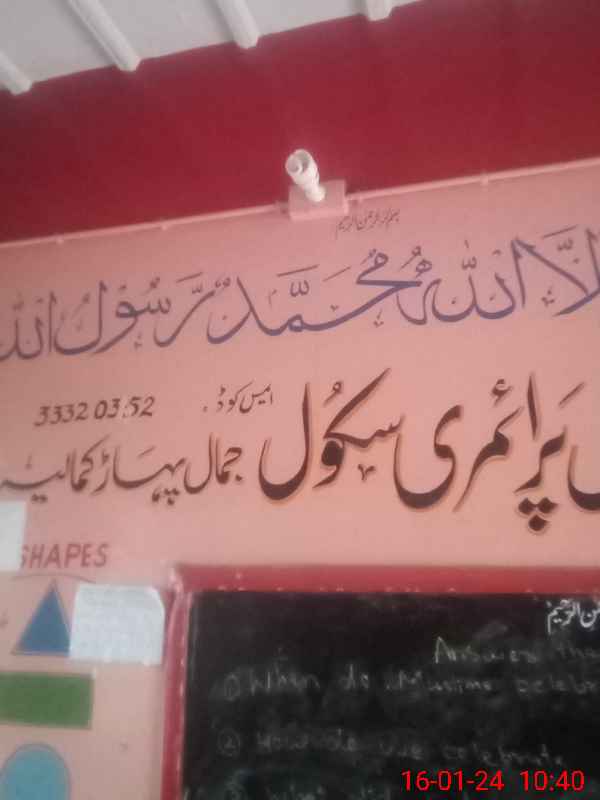 بسم اللہ الرحمن الرحیم
الا اللہ محمد رسول اللہ
ایمس کوڈ. 33320352
پرائمری سکول جمال پہاڑ کمالیہ
SHAPES
من الرحیم
Answer tha
① When do Muslims celebr
② How do we celebrate
16-01-24 10:40